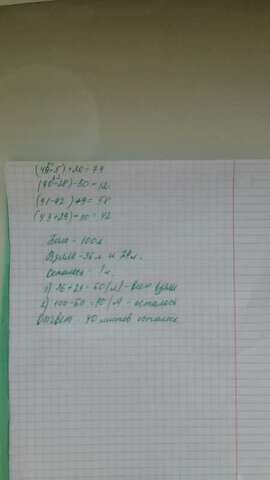 (48+5)+26=79
(90-28)-50=12.
(91-42)+9=58
(43+29)-30=42
Было - 100л
Взяли - 36 л и 24 л.
Осталось - ? л.
1) 36+24=60 (л) - всего взяли
2) 100-60=40 (л) - осталось
Ответ: 40 листов осталось